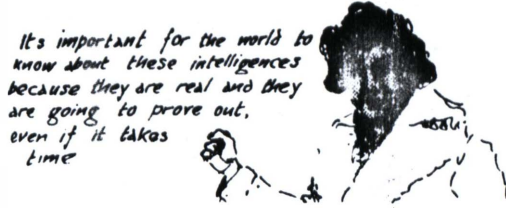 Its important for the world to
know about these intelligences
because they are real and they
are going to prove out,
even if it takes
time